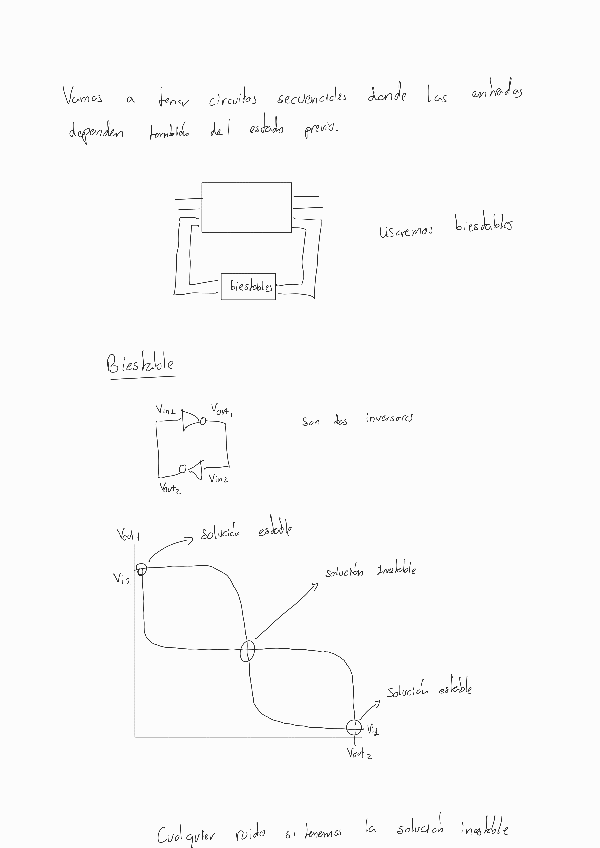 Vamos a tener circuitos secuenciales donde las entradas
dependen también del estado previo.
Usaremos biestables
biestables
Biestable
Vin1 Vout1
son dos inversores
Vout2 Vin2
Vout1
solución estable
solución Inestable
solución estable
Vout2
Cualquier ruido si tenemos la solución inestable